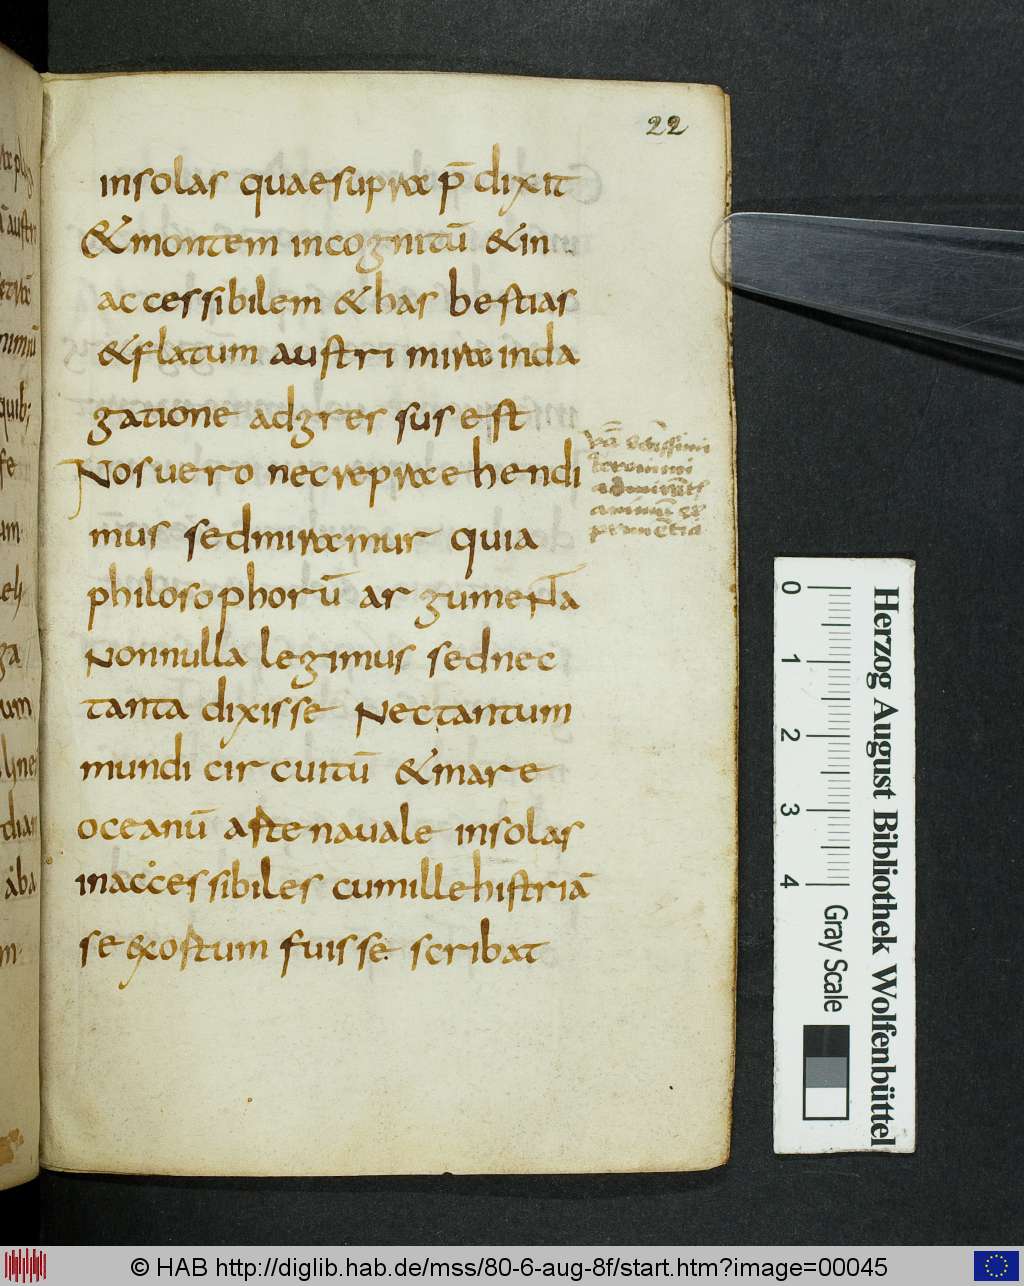 22
insolas quaesupra p̄ dixit
& montem incognitū & in
accessibilem & has bestias
& flatum austri mira inda
gatione adgressus est
Nos uero nec repraehendi
mus sed miramur quia
philosophorū argumenta
Nonnulla legimus sed nec
tanta dixisse Nec tantum
mundi circuitū & mare
oceanū aftenauale insolas
inaccessibiles cumillehistriā
se exostum fuisse scribat
0 1 2 3 4
Gray Scale
Herzog August Bibliothek Wolfenbüttel
© HAB http://diglib.hab.de/mss/80-6-aug-8f/start.htm?image=00045